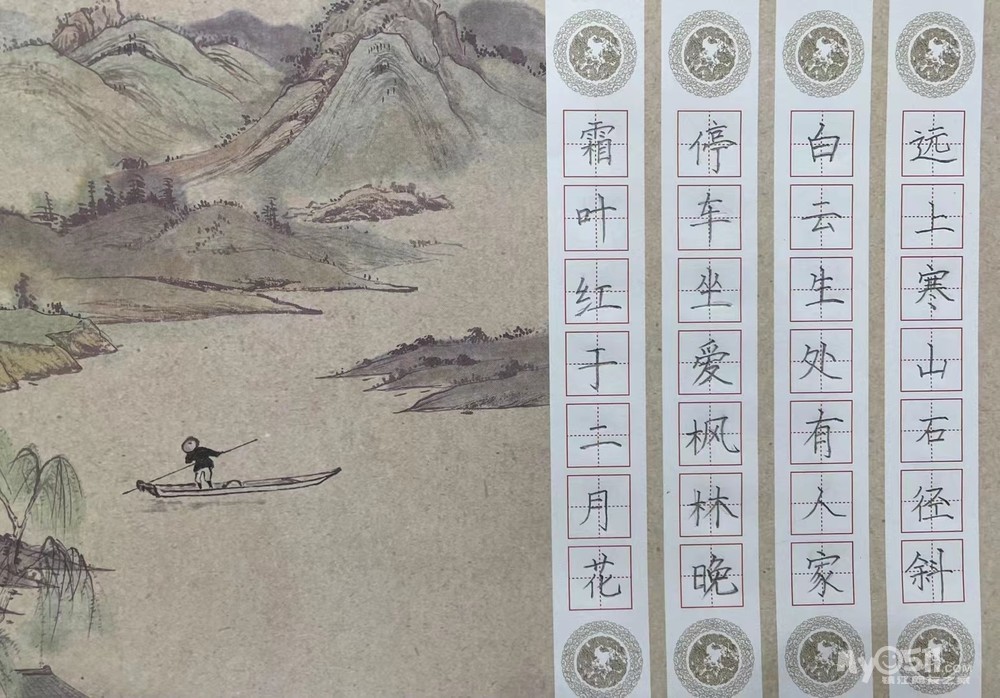 远上寒山石径斜
白云生处有人家
停车坐爱枫林晚
霜叶红于二月花
My0511.COM
镇江网友之家